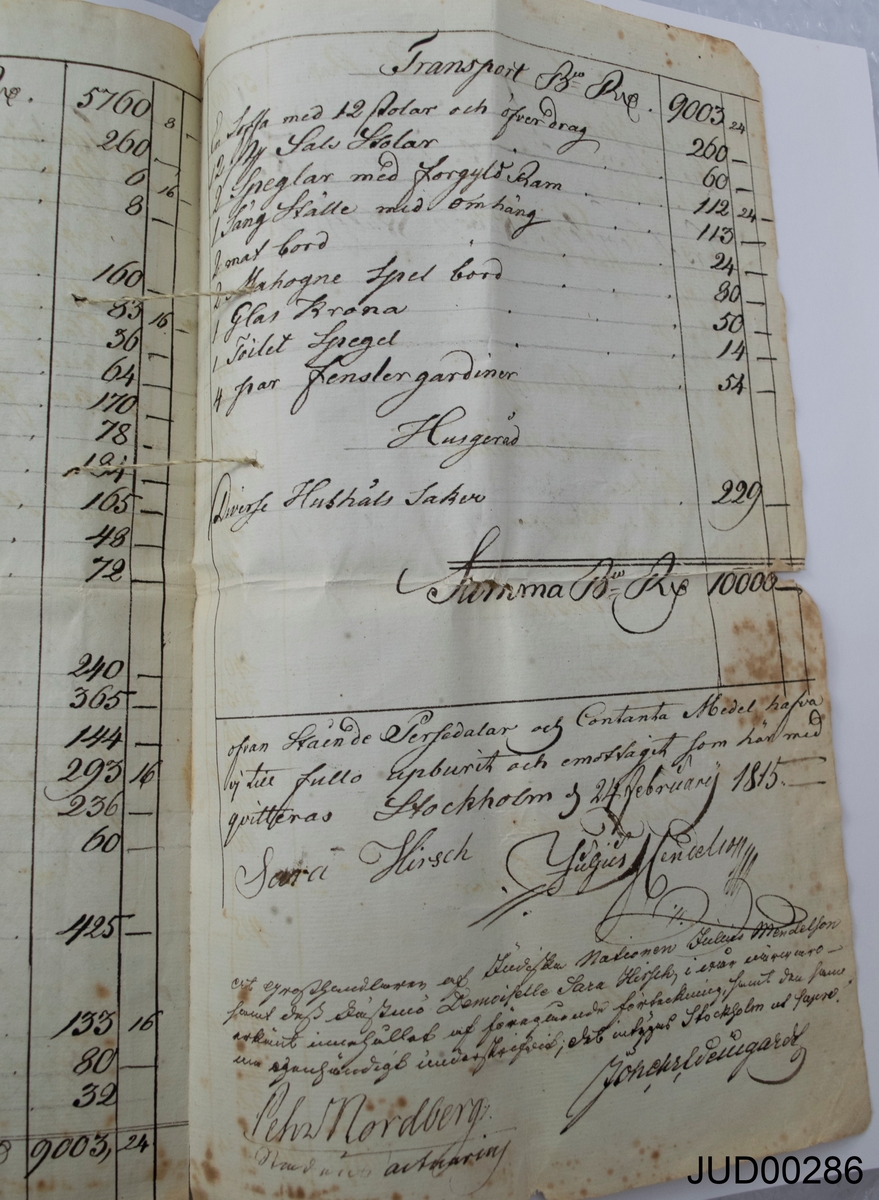 5760 8
260 —
6 16
8 —
160 —
83 16
36 —
64 —
170 —
78 —
165 —
48 —
72 —
240 —
365 —
144 —
293 16
236 —
60 —
425 —
133 16
80 —
32
9003, 24
Transport Bco Rx. 9003 24
Soffa med 12 stolar och öfverdrag 260 —
12 Ny Sals Stolar 60 —
2 Speglar med förgyld Ram 112 24
1 Säng Ställe med omhäng 113 —
2 mat bord 24 —
2 Mahogne Spel bord 80 —
1 Glas Krona 50 —
1 Toilet Spegel 14 —
4 par Fenstergardiner 54 —
Husgeråd
Diverse Hushåls Saker 229 —
Summa Bco Rx 10000 —
ofvan Stående Persedalar och Contanta Medel hafva
vj till fullo upburit och emottagit som här med
qvitteras Stockholm d 24 februarij 1815.
Sara Hirsch Julius Mendelson
at Grosshandlaren af Judiska Nationen Julius Mendelson
samt dess fästmö Demoiselle Sara Hirsch, i vår närvaro
erkänt innehållet af föregående förteckning, samt den samma
egenhändigt underskrifvit; det intygas Stockholm ut supra.
Pehr Nordberg
actuarius
JUD00286